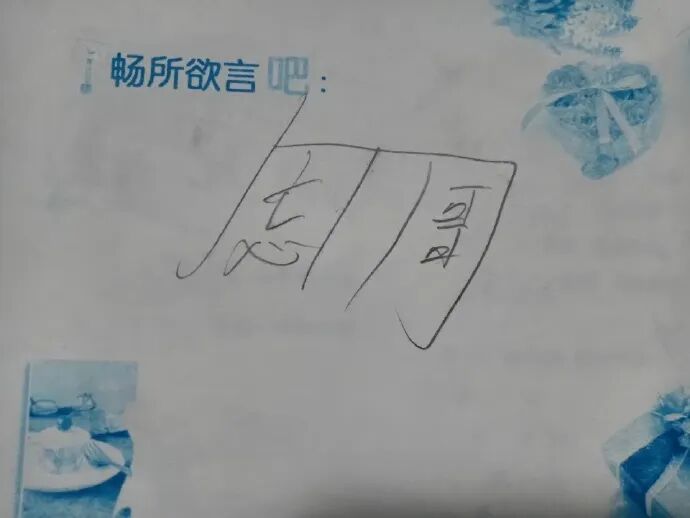 畅所欲言吧：
志哥